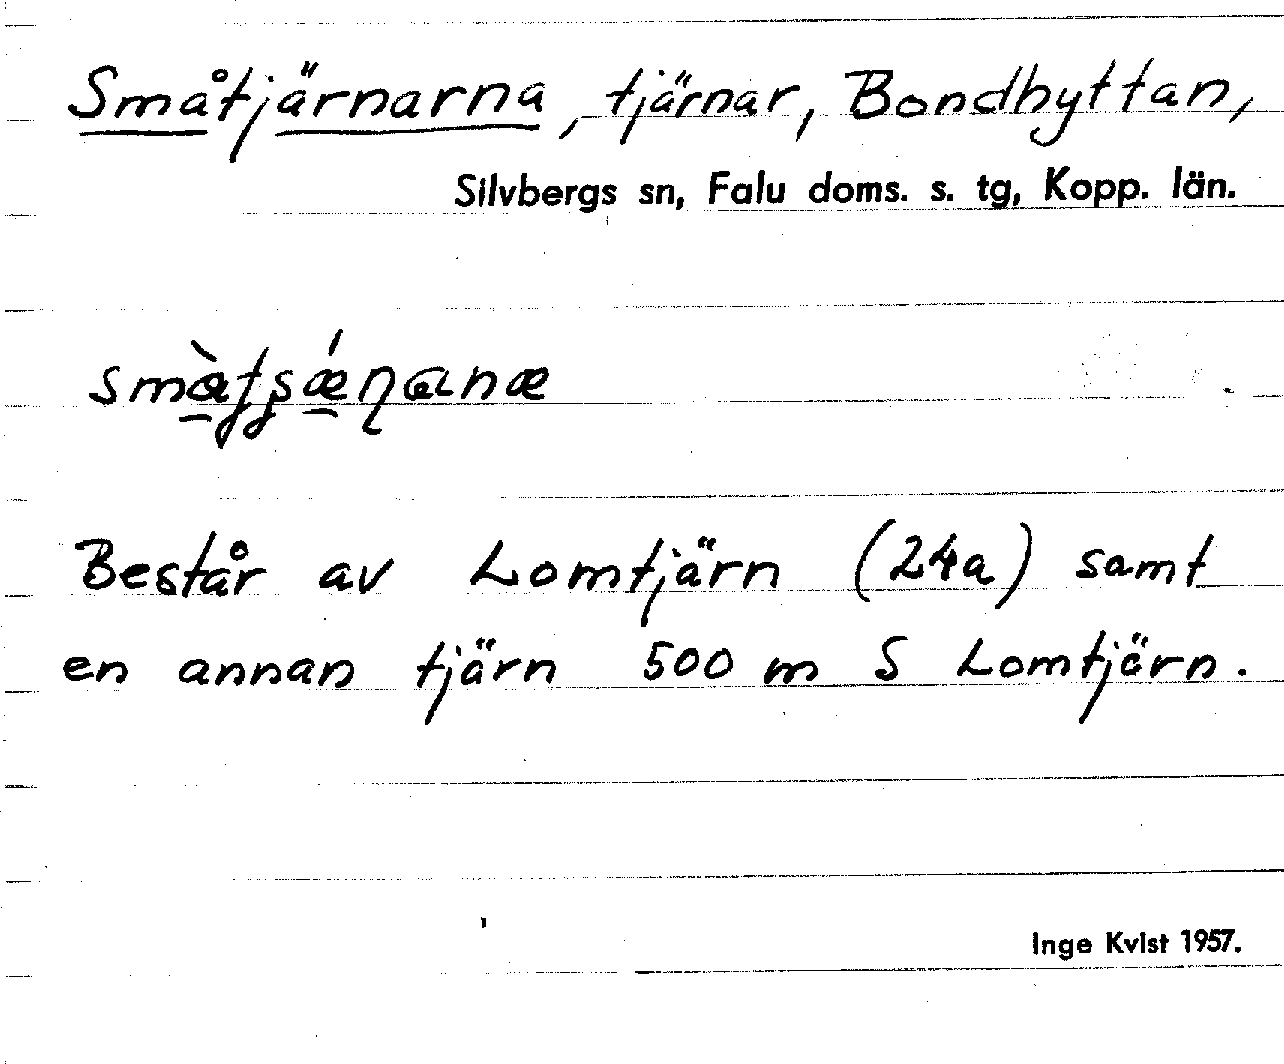 Småtjärnarna, tjärnar, Bondhyttan,
Silvbergs sn, Falu doms. s. tg, Kopp. län.
Består av Lomtjärn (24a) samt
en annan tjärn 500 m S Lomtjärn.
Inge Kvist 1957.